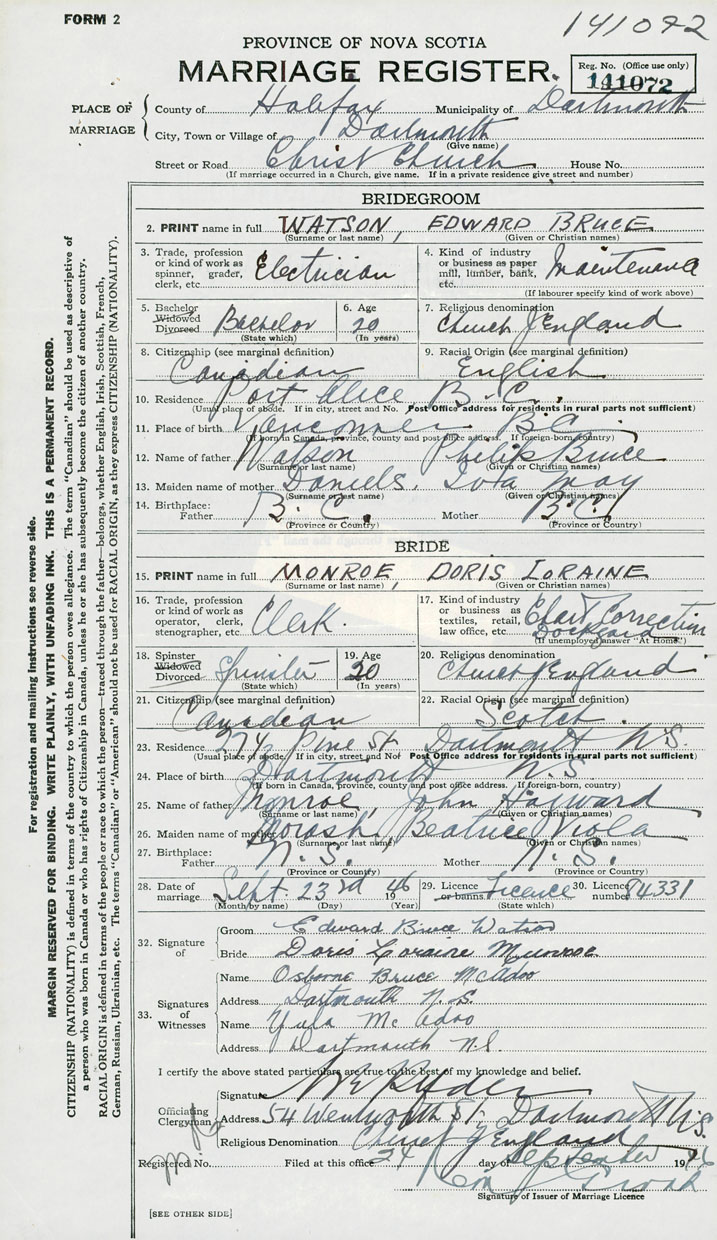 FORM 2
141072
PROVINCE OF NOVA SCOTIA
MARRIAGE REGISTER.
Reg. No. (Office use only)
141072
PLACE OF MARRIAGE
County of Halifax Municipality of Dartmouth
City, Town or Village of Dartmouth
(Give name)
Street or Road Christ Church House No.
(If marriage occurred in a Church, give name. If in a private residence give street and number)
BRIDEGROOM
2. PRINT name in full WATSON, EDWARD BRUCE
(Surname or last name) (Given or Christian names)
3. Trade, profession or kind of work as spinner, grader, clerk, etc. Electrician
4. Kind of industry or business as paper mill, lumber, bank, etc. Maintenance
(If labourer specify kind of work above)
5. Bachelor Widowed Divorced Bachelor
(State which)
6. Age 20
(In years)
7. Religious denomination Church of England
8. Citizenship (see marginal definition) Canadian
9. Racial Origin (see marginal definition) English
10. Residence Port Alice, B.C.
(Usual place of abode. If in city, street and No. Post Office address for residents in rural parts not sufficient)
11. Place of birth Vancouver B.C.
(If born in Canada, province, county and post office address. If foreign-born, country)
12. Name of father Watson Philip Bruce
(Surname or last name) (Given or Christian names)
13. Maiden name of mother Daniels, Iola May
(Surname or last name) (Given or Christian names)
14. Birthplace: Father B.C. Mother B.C.
(Province or Country) (Province or Country)
BRIDE
15. PRINT name in full MONROE, DORIS LORAINE
(Surname or last name) (Given or Christian names)
16. Trade, profession or kind of work as operator, clerk, stenographer, etc. Clerk.
17. Kind of industry or business as textiles, retail, law office, etc. Chart Correction Dockyard
(If unemployed answer "At Home")
18. Spinster Widowed Divorced Spinster
(State which)
19. Age 20
(In years)
20. Religious denomination Church of England
21. Citizenship (see marginal definition) Canadian
22. Racial Origin (see marginal definition) Scotch.
23. Residence 274 Pine St Dartmouth N.S.
(Usual place of abode. If in city, street and No Post Office address for residents in rural parts not sufficient)
24. Place of birth Dartmouth N.S.
(If born in Canada, province, county and post office address. If foreign-born, country)
25. Name of father Monroe, John Hayward
(Surname or last name) (Given or Christian names)
26. Maiden name of mother Morash, Beatrice Viola
(Surname or last name) (Given or Christian names)
27. Birthplace: Father N.S. Mother N.S.
(Province or Country) (Province or Country)
28. Date of marriage Sept. 23rd 1946
(Month by name) (Day) (Year)
29. Licence or banns Licence
(State which)
30. Licence number 84331
32. Signature of
Groom Edward Bruce Watson
Bride Doris Loraine Munroe
33. Signatures of Witnesses
Name Osborne Bruce McAdoo
Address Dartmouth N.S.
Name Yula McAdoo
Address Dartmouth N.S.
I certify the above stated particulars are true to the best of my knowledge and belief.
Officiating Clergyman
Signature
Address 54 Wentworth St. Dartmouth N.S.
Religious Denomination Church of England
Registered No. Filed at this office 24 day of September 1946
Signature of Issuer of Marriage Licence
[SEE OTHER SIDE]
For registration and mailing instructions see reverse side.
MARGIN RESERVED FOR BINDING. WRITE PLAINLY, WITH UNFADING INK. THIS IS A PERMANENT RECORD.
CITIZENSHIP (NATIONALITY) is defined in terms of the country to which the person owes allegiance. The term "Canadian" should be used as descriptive of
a person who was born in Canada or who has rights of Citizenship in Canada, unless he or she has subsequently become the citizen of another country.
RACIAL ORIGIN is defined in terms of the people or race to which the person—traced through the father—belongs, whether English, Irish, Scottish, French,
German, Russian, Ukrainian, etc. The terms "Canadian" or "American" should not be used for RACIAL ORIGIN, as they express CITIZENSHIP (NATIONALITY).